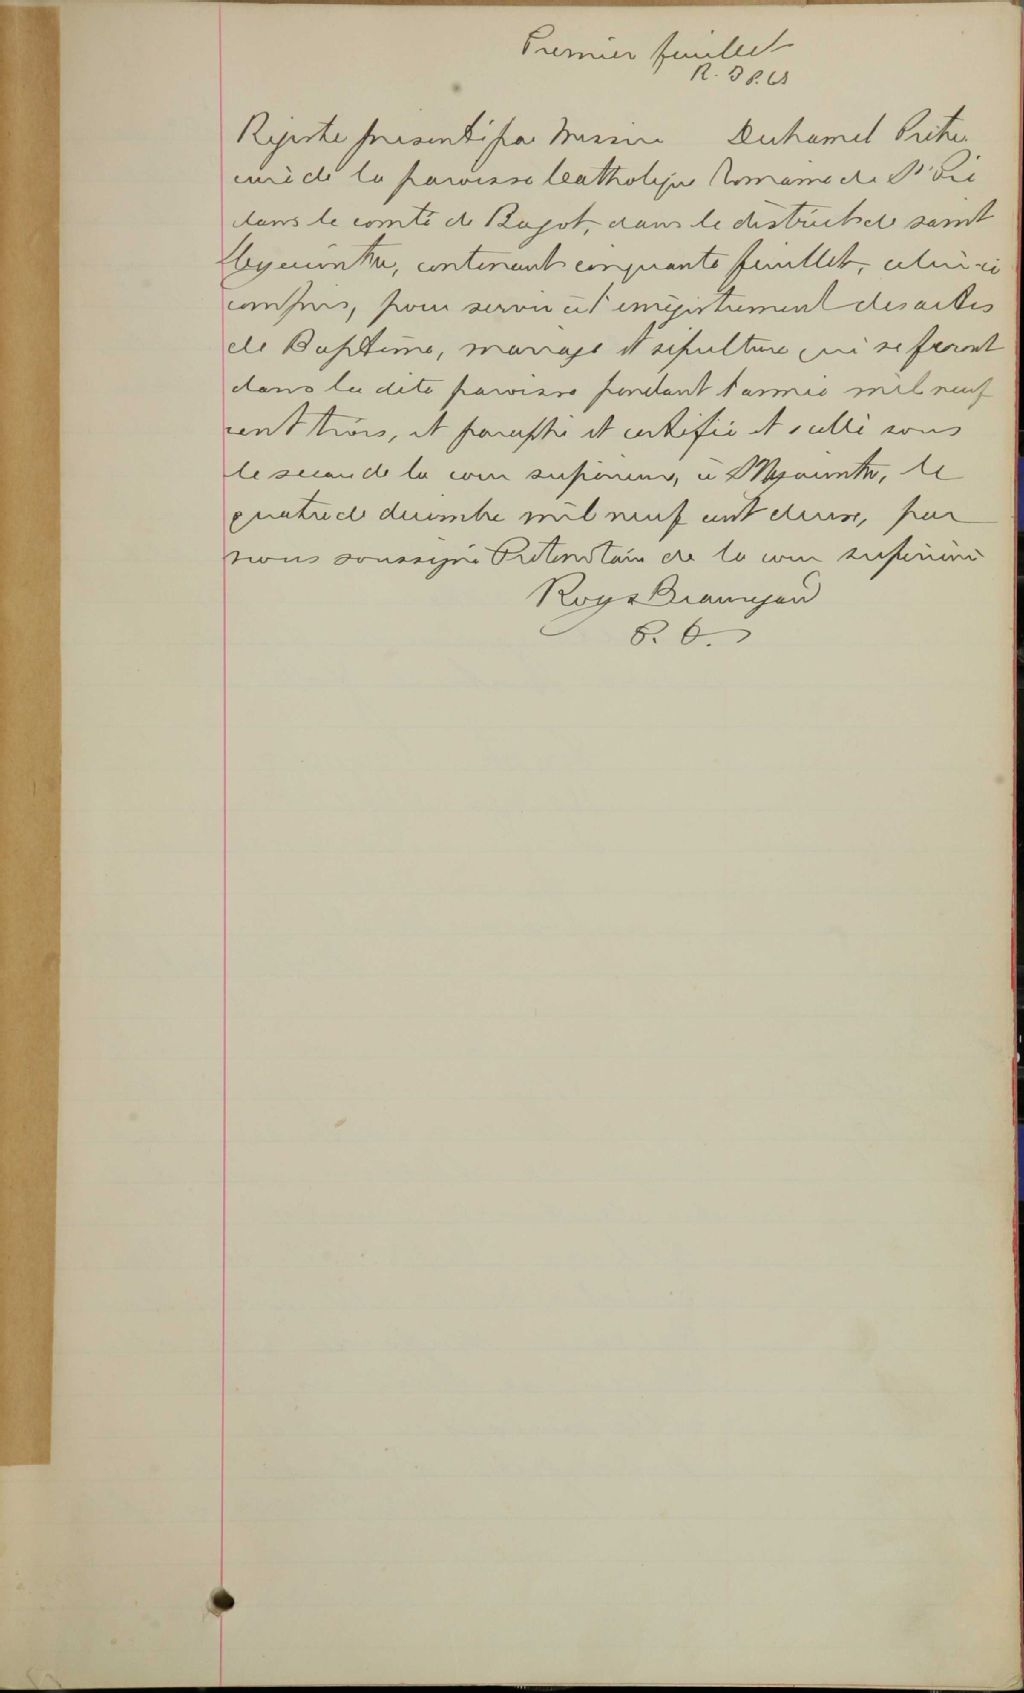 Premier feuillet
R. B P.CS
Registre présenté par Messire Duhamel Prêtre
curé de la paroisse Catholique Romaine de St Pie
dans le comté de Bagot, dans le district de saint
Hyacinthe, contenant cinquante feuillets, celui-ci
compris, pour servir à l'enregistrement des actes
de Baptême, mariage et sépulture qui se feront
dans la dite paroisse pendant l'année mil neuf
cent trois, et paraphé et certifié et scellé sous
le sceau de la cour supérieure, à St Hyacinthe, le
quatre de décembre mil neuf cent deux, par
nous soussigné Protonotaire de la cour supérieure
Roy & Beauregard
P. C. S.